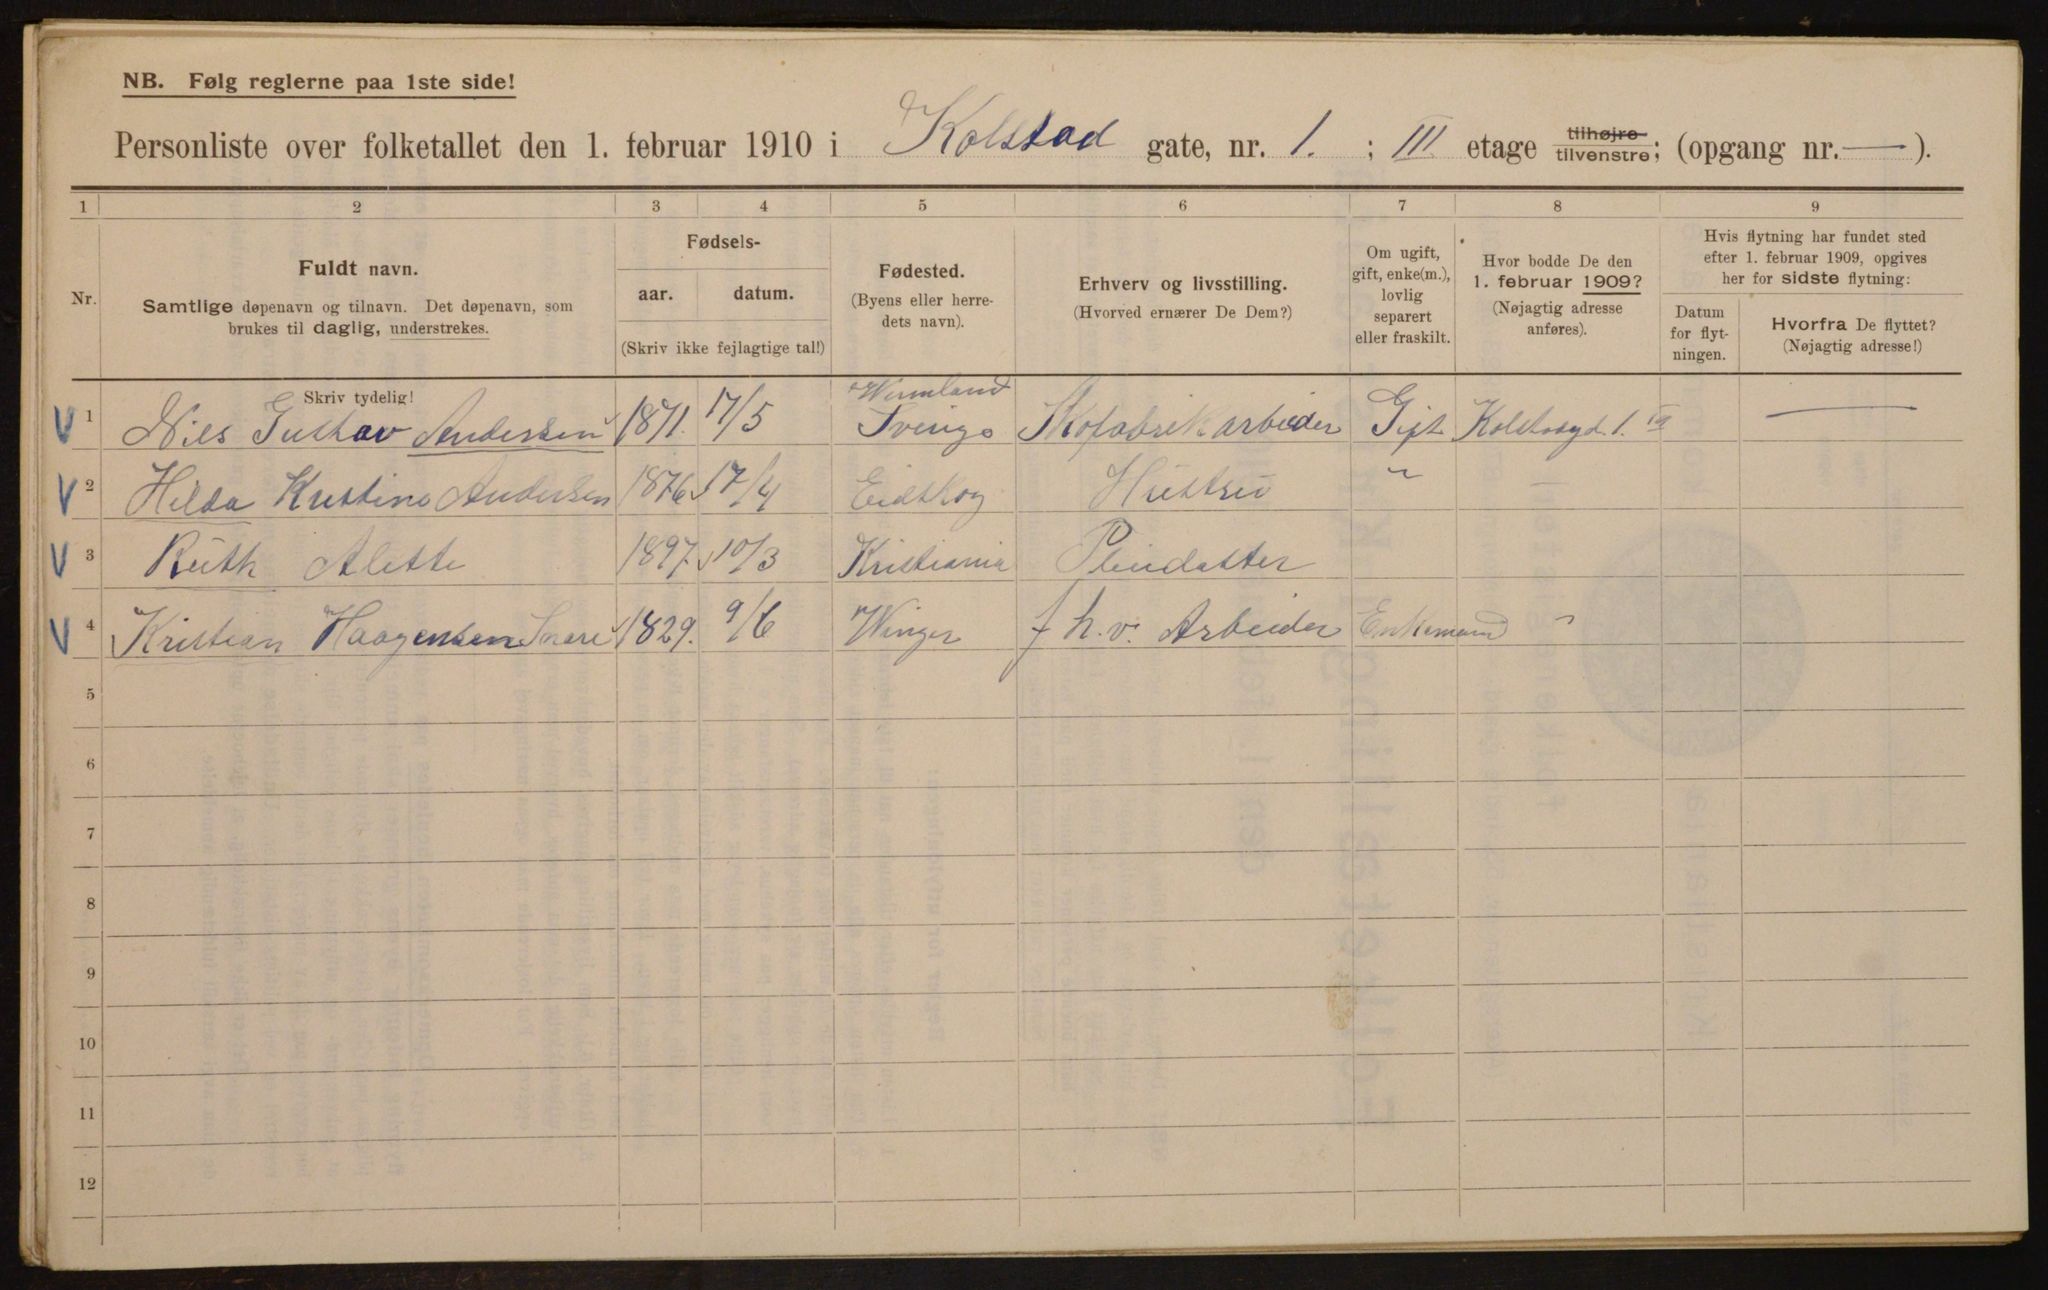 NB. Følg reglerne paa 1ste side!
Personliste over folketallet den 1. februar 1910 i Kolstad gate, nr. 1. ; III etage tilhøjre tilvenstre; (opgang nr. — ).
1 2 3 4 5 6 7 8 9
Nr.
Fuldt navn.
Samtlige døpenavn og tilnavn. Det døpenavn, som
brukes til daglig, understrekes.
Fødsels-
aar. datum.
(Skriv ikke fejlagtige tal!)
Fødested.
(Byens eller herre-
dets navn).
Erhverv og livsstilling.
(Hvorved ernærer De Dem?)
Om ugift,
gift, enke(m.),
lovlig
separert
eller fraskilt.
Hvor bodde De den
1. februar 1909?
(Nøjagtig adresse
anføres).
Hvis flytning har fundet sted
efter 1. februar 1909, opgives
her for sidste flytning:
Datum
for flyt-
ningen.
Hvorfra De flyttet?
(Nøjagtig adresse!)
Skriv tydelig!
V 1 Nils Gustav Andersen 1871. 17/5 Wermland Kofabrikarbeider Gift 1. III —
V 2 Hilda Kristine Andersen 1876 17/4 Eidskog Hustru " –
V 3 Ruth Alette 1897 10/3 Kristiania Pleiedatter
V 4 Kristian Haagensen 1829. 9/6 Winger f h.v. Arbeider Enkemand "
5
6
7
8
9
10
11
12